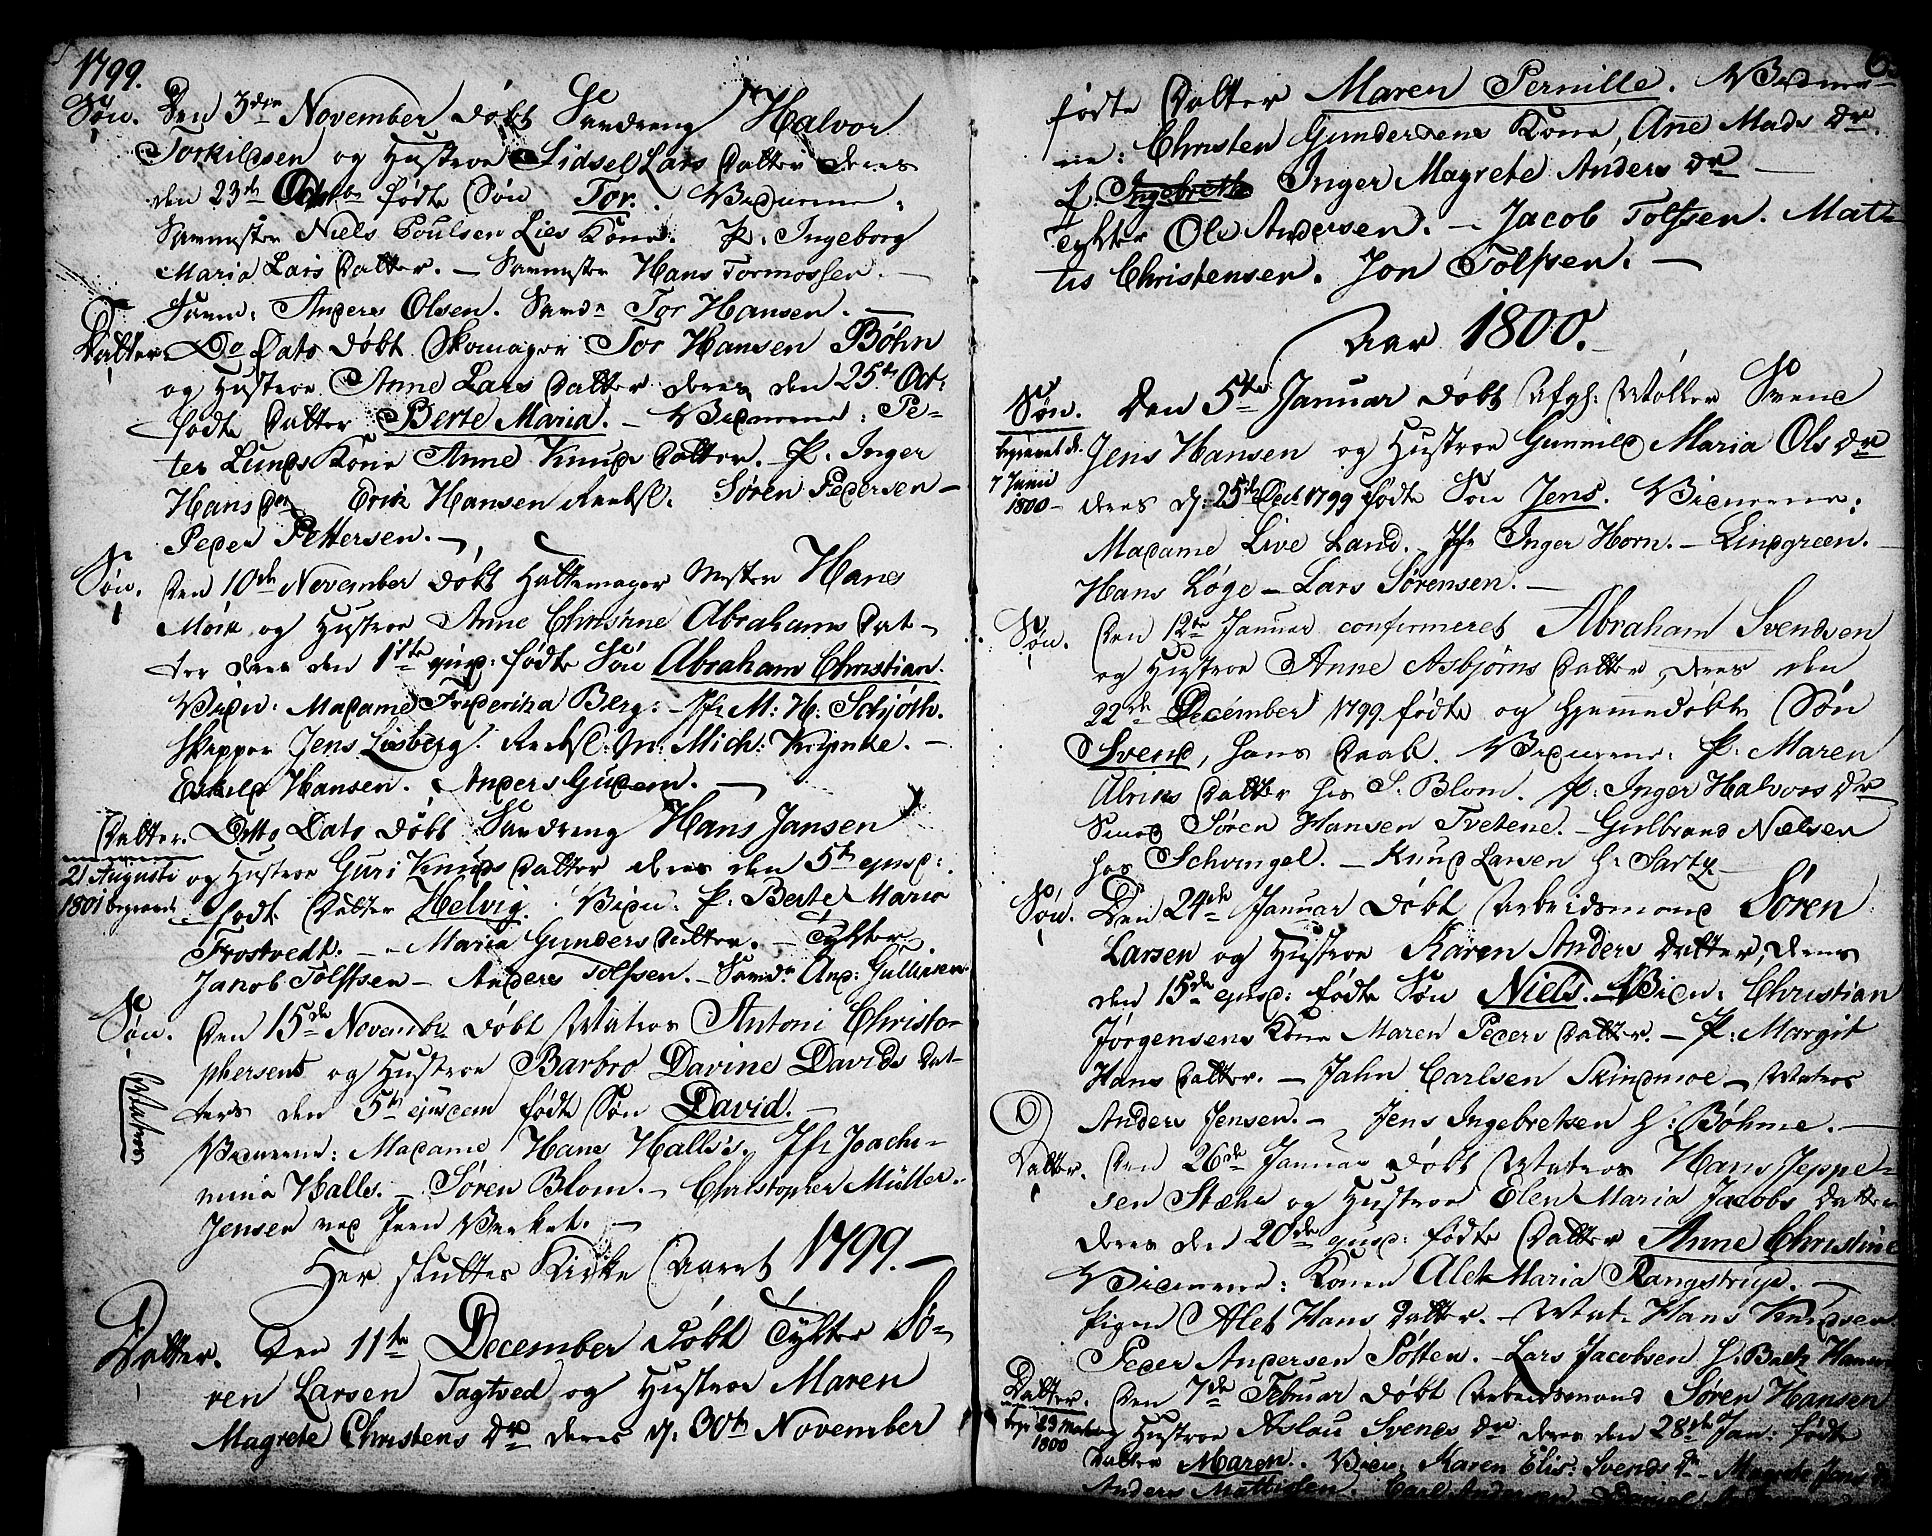 1799.
Søn. Den 3die November döbt Sandreng Halvor
Torkildsen og Hustroe Sidsel Lars Datter deres
den 23de Octobr födte Søn Tor. Vidnerne:
Niels Poulsen Lies Kone. P. Ingeborg
Maria Lars Datter. — Hans Tormossen. —
Anders Olsen. Sand: Tor Hansen. —
Datter. Do Dato döbt Skomager Tor Hansen Bøhn
og Hustroe Anne Lars Datter deres den 25de Oct:
födte Datter Berte Maria. — Vidnerne: Pe-
ter Lunds Kone Anne Knuds Datter. P. Inger
Hans Dr Erik Hansen Søren Pedersen —
Peder Pettersen. —
Søn. Den 10de November döbt Hattemager Mester Hans
Mörk og Hustroe Anne Christine Abrahams Dat-
ter deres den 1ste ejusd: födte Søn Abraham Christian.
Vidn: Madame Friderikka Berg: — Jfr M: H: Schjøth.
Skipper Jens Lisberg. Mich:
Eskild Hansen. Anders Gudem. —
Datter. Ditto Dato döbt Sandreng Hans Jansen
21 Augusti og Hustroe Guri Knuds Datter deres den 5te ejusd:
1801 begravet. födte Datter Helvig. Vidn: P. Berte Maria
Frostvedt. — Maria Gunders Datter. — Tychter
Jacob Tolfsen — Anders Tolfsen. — Sand: And: Gulliksen
Søn. Den 15de Novembr döbt Matros Antoni Christo-
phersens og Hustroe Barbro Davine Davids Dat-
Matros
ters den 5te ejusdem födte Søn David. —
Vidnerne: Madame Hans Halls's. Jfr Joachi-
mine Halls. — Søren Blom. — Christopher Müller.
Jensen ved Jern Værket. —
Her slutter Kirke Aaret 1799. —
Datter. Den 11te December döbt Tychter Sø-
ren Larsen Tagtved og Hustroe Maren
Magrete Christens Dr deres d. 30te November
födte Datter Maren Pernille. Vidner-
ne: Christen Gundersens Kone, Ane Mads Dr.
P. Inger Magrete Anders Dr —
Tychter Ole Andersen. — Jacob Tolfsen. Mat-
tis Christensen. Jon Tolfsen. —
Aar 1800.
Søn. Den 5te Januar döbt Afg: Møller Svend
begravet d. Jens Hansen og Hustroe Gunnild Maria Ols Dr
7 Junii
1800 — deres d: 25de Dect 1799 födte Søn Jens. Vidnerne:
Madame Live Land. Jfr Inger Horn. — Lindgreen. —
Hans Løge — Lars Sørensen. —
Søn. Den 12te Januar confirmeret Abraham Svendsen
og Hustroe Anne Asbjørns Datter, deres den
22de December 1799 födte og hjemmedøbte Søn
Svend, hans Daab. Vidnerne: P. Maren
Alriks Datter hos S. Blom. P. Inger Halvors Dr
Smed Søren Hansen Tvetene. — Gulbrand Nielsen
hos Schvingel. — Knud Larsen h: Sartz —
Søn. Den 24de Januar döbt Arbeidsmand Søren
Larsen og Hustroe Karen Anders Datter, deres
den 15de ejusd: födte Søn Niels. — Vidn: Christian
Jørgensens Kone Maren Peders Datter. — P. Margit
Hans Datter. — Jahn Carlsen Skindmoe — Matros
Anders Jensen. — Jens Ingebretsen h: Bøhme. —
Datter. Den 26de Januar döbt Matros Hans Jeppe-
sen Stæhr og Hustroe Elen Maria Jacobs Datter
deres den 20de ejusd: födte Datter Anne Christine
Vidnerne: Konen Alet Maria Rangstrup. —
Pigen Alet Hans Datter. — Mat: Hans Knudsen
Peder Andersen Sötten. — Lars Jacobsen h. Baltz Hansen
Datter. Den 7de Februar döbt Arbeidsmand Søren Hansen
1800 og Hustroe Aslau Svends Dr deres den 28de Jan: födte
Datter Maren. Vidn: Karen Elis: Svends Dr — Magrete Jens D
Anders Mattissen. Carl Andersen